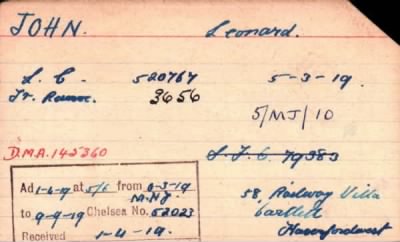 JOHN. Leonard.
L. C. 520767 5-3-19.
Tr. 3656
5/MJ/10
D.M.A. 145360
L.F.C. 79383
Ad 1-4-19 at 5/6 from 6-3-19
58, Railway Villa
to 9-9-19 Chelsea No. 52023
Haverfordwest
Received 1-4-19.